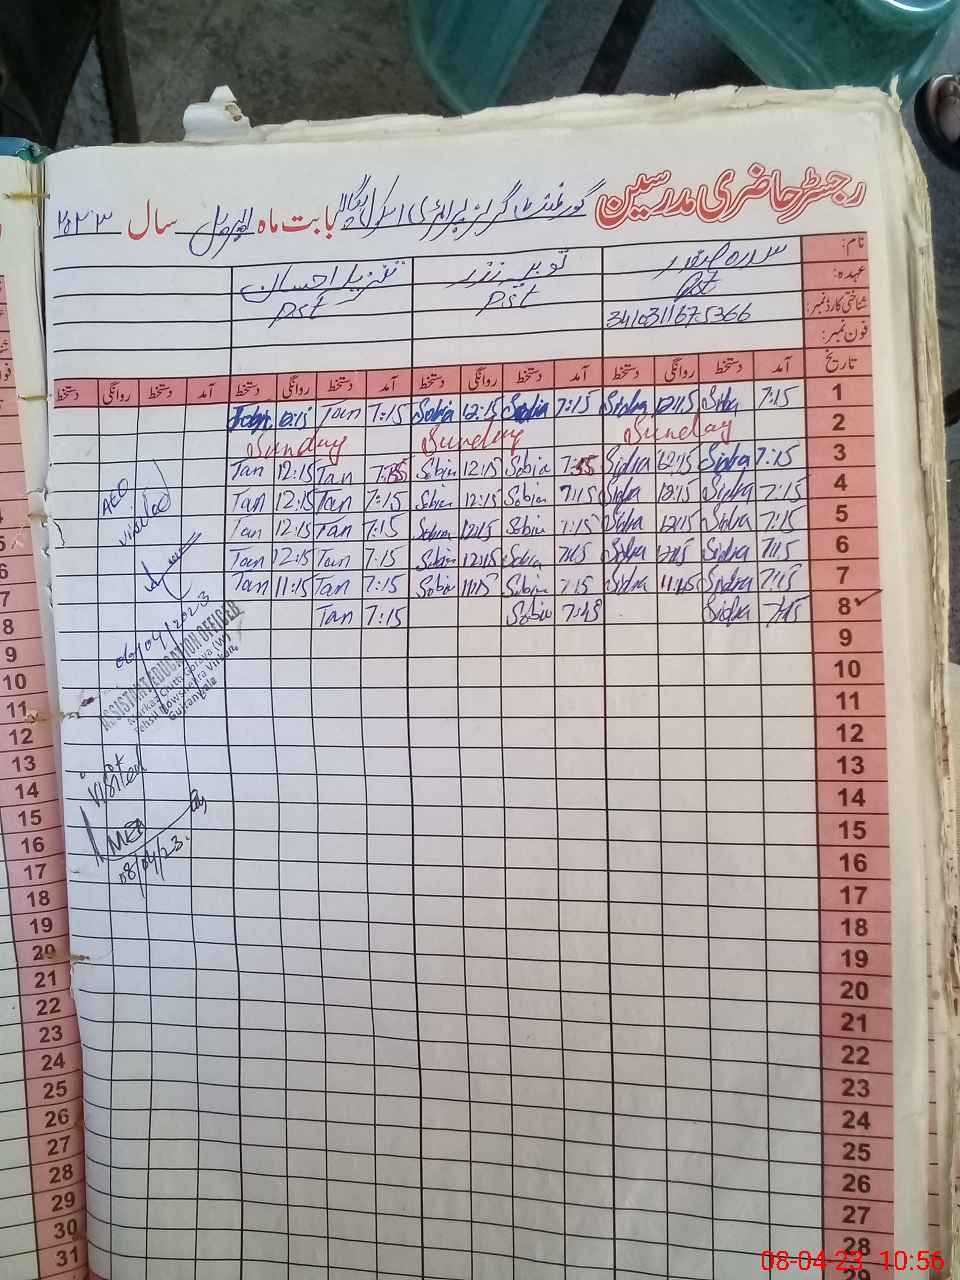 رجسٹر حاضری مدرسین گورنمنٹ گرلز پرائمری اسکول بابت ماہ اپریل سال ۲۰۲۳
نام:
عہدہ: Pst Pst
شناختی کارڈ نمبر: 3410311675366
فون نمبر:
تاریخ آمد دستخط روانگی دستخط آمد دستخط روانگی دستخط آمد دستخط روانگی دستخط آمد دستخط روانگی دستخط
1 7:15 Sidra 12:15 Sidra 7:15 Sobia 12:15 Sobia 7:15 Tan 12:15
2 Sunday Sunday Sunday
3 7:15 Sidra 12:15 Sidra Sobia 12:15 Sobia Tan 12:15 Tan
4 7:15 Sidra 12:15 Sidra 7:15 Sobia 12:15 Sobia 7:15 Tan 12:15 Tan
5 7:15 Sidra 12:15 Sidra 7:15 Sobia 12:15 Sobia 7:15 Tan 12:15 Tan
6 7:15 Sidra 12:15 Sidra 7:15 Sobia 12:15 Sobia 7:15 Tan 12:15 Tan
7 7:15 Sidra Sidra 7:15 Sobia 11:15 Sobia 7:15 Tan 11:15 Tan
8 Sidra Sobia 7:15 Tan
9
10
11
12
13
14
15
16
17
18
19
20
21
22
23
24
25
26
27
28
29
AEO
visited
06/04/2023
ASSISTANT EDUCATION OFFICER
Markaz (W)
Tehsil Nowshehra Virkan,
Gujranwala
Visited
MEA
08/04/23
5
6
7
8
9
10
11
12
13
14
15
16
17
18
19
20
21
22
23
24
25
26
27
28
29
30
31
08-04-23 10:56